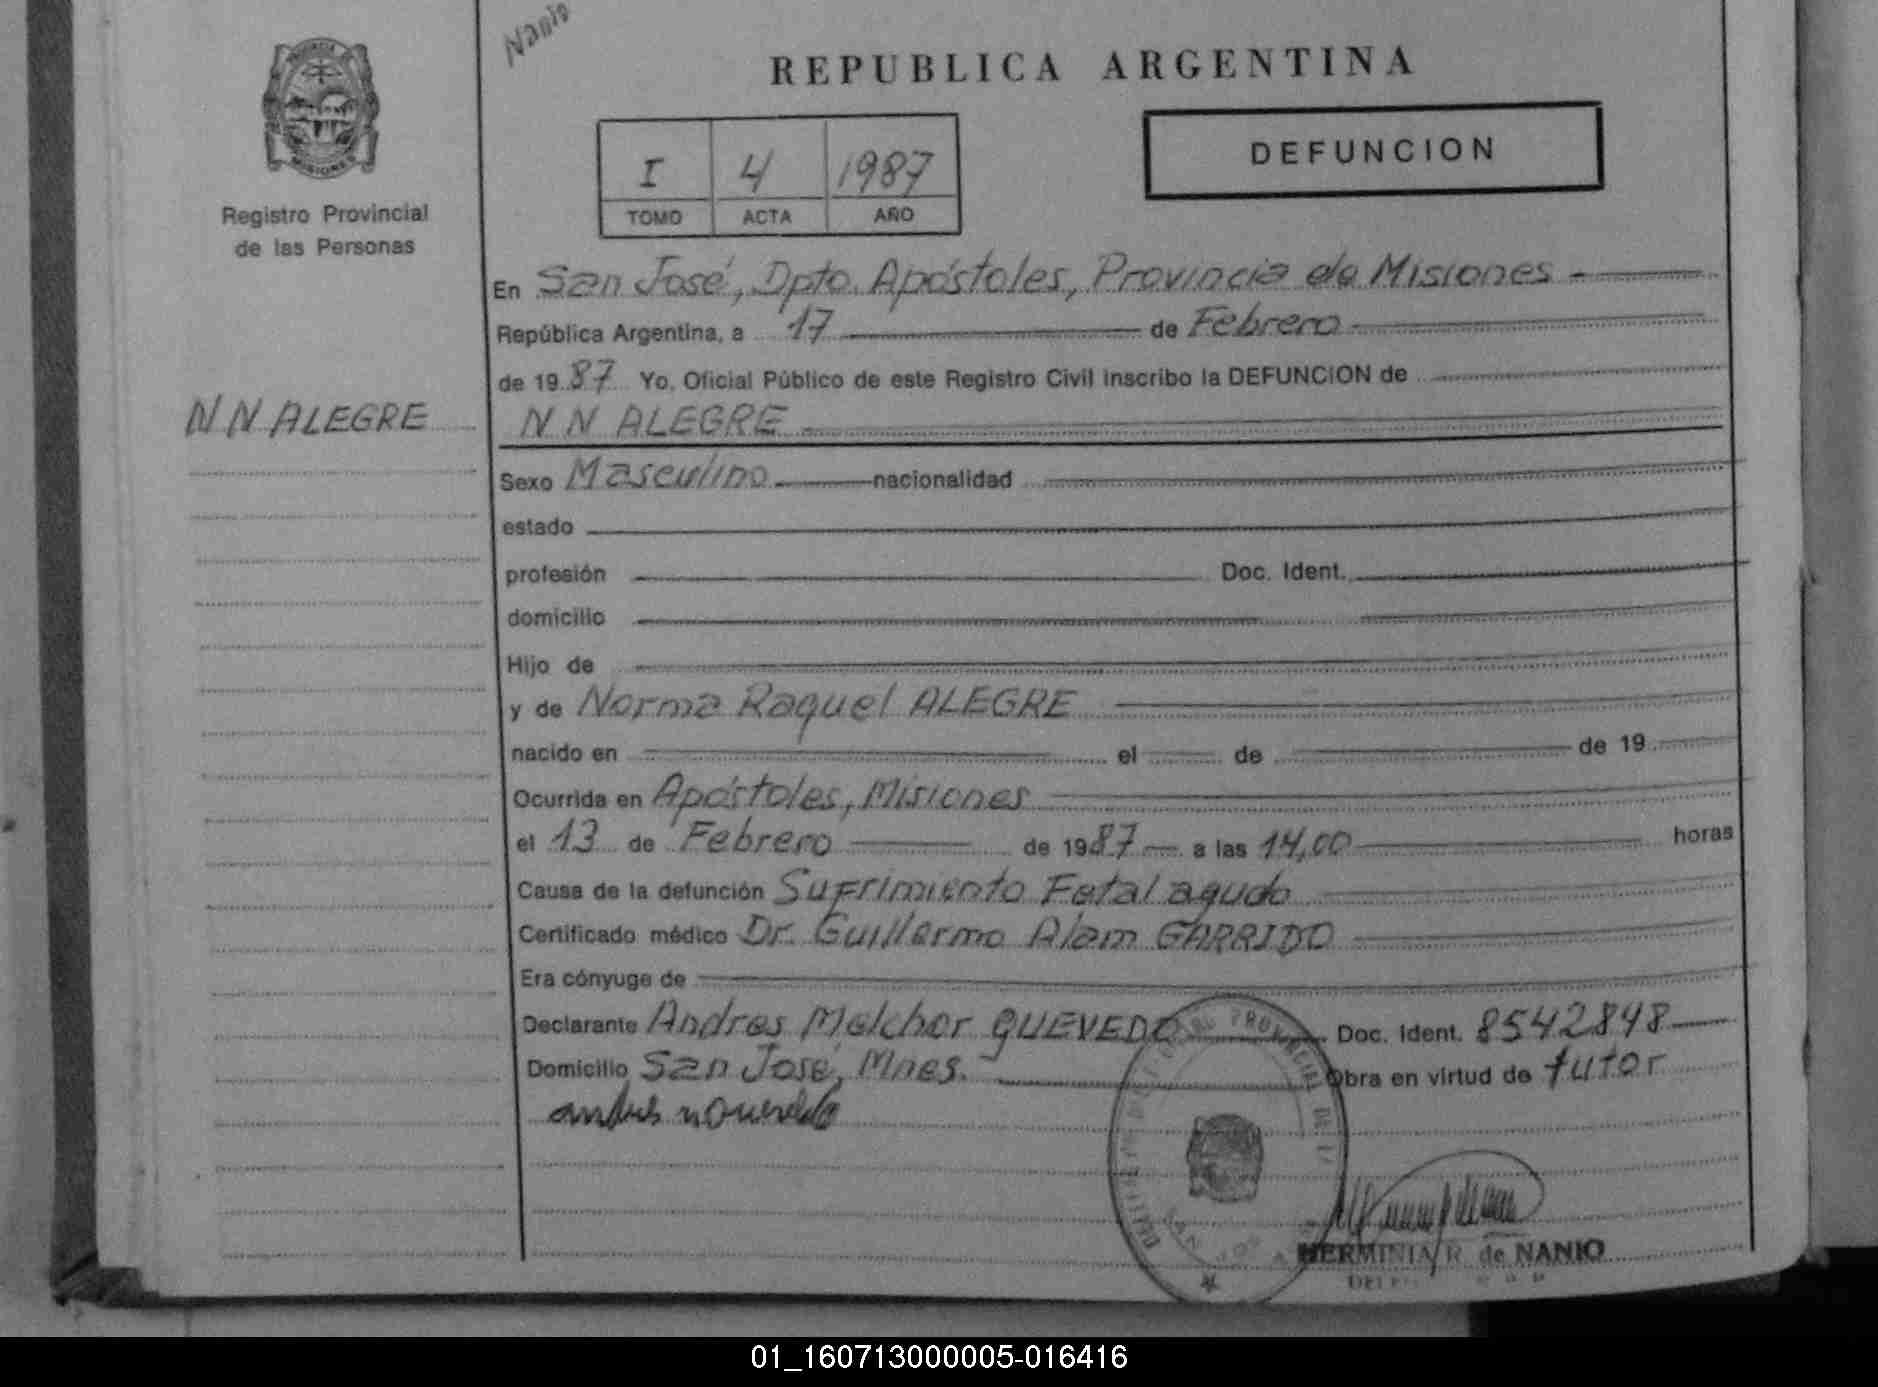 Nanio
REPUBLICA ARGENTINA
MISIONES
Registro Provincial
de las Personas
I 4 1987
TOMO ACTA AÑO
DEFUNCION
En San José, Dpto. Apóstoles, Provincia de Misiones
República Argentina, a 17 de Febrero
de 1987 Yo, Oficial Público de este Registro Civil inscribo la DEFUNCION de
N N ALEGRE
N N ALEGRE
Sexo Masculino nacionalidad
estado
profesión Doc. Ident.
domicilio
Hijo de
y de Norma Raquel ALEGRE
nacido en el de de 19
Ocurrida en Apóstoles, Misiones
el 13 de Febrero de 1987 a las 14,00 horas
Causa de la defunción Sufrimiento Fetal agudo
Certificado médico Dr. Guillermo Alam GARRIDO
Era cónyuge de
Declarante Andres Melchor QUEVEDO Doc. Ident. 8542848
Domicilio San José, Mnes. Obra en virtud de tutor
HERMINIA R. de NANIO
01_160713000005-016416